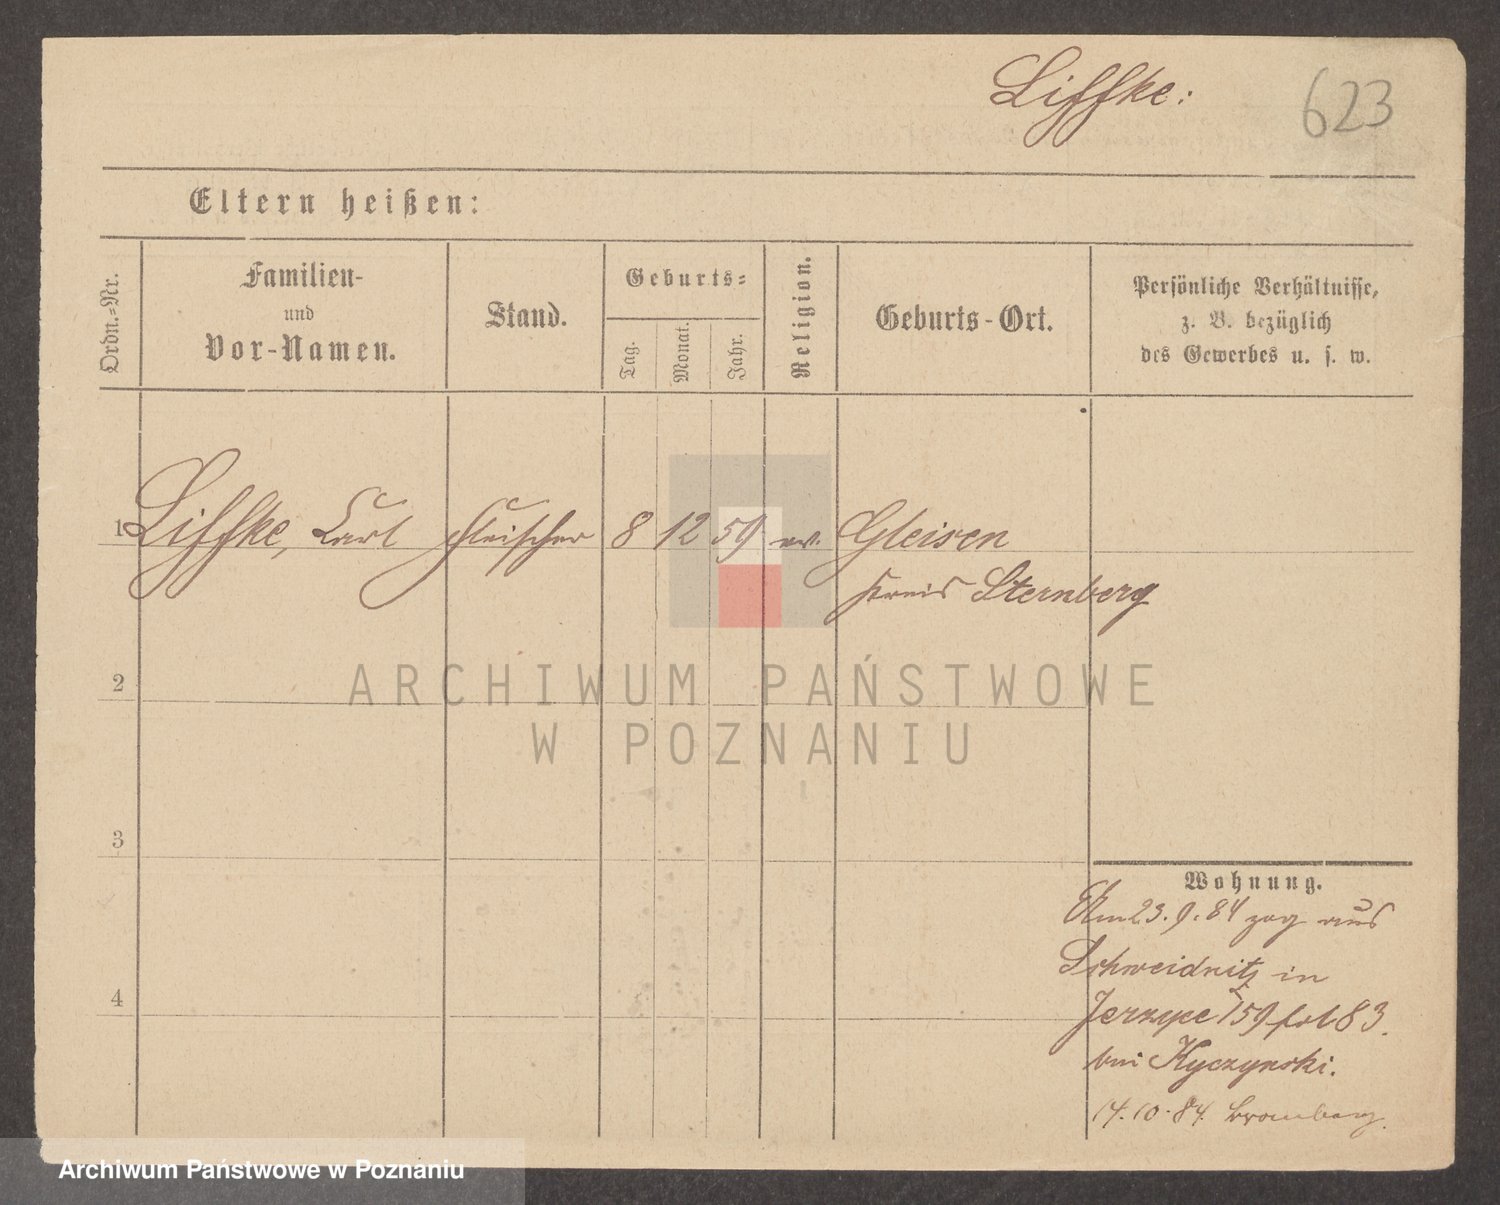 Liffke:
623
Eltern heißen:
Ordn.-Nr.
Familien-
und
Vor-Namen.
Stand.
Geburts-
Tag.
Monat.
Jahr.
Religion.
Geburts-Ort.
Persönliche Verhältnisse,
z. B. bezüglich
des Gewerbes u. s. w.
1 Liffke, Carl Fleischer 8 12 59 ev. Gleisen
Kreis Sternberg
2
3
4
Wohnung.
Am 23.9.84 zog aus
Schweidnitz in
Jerzyce 159 fol 83.
bei Kyczynski.
14.10.84 Bromberg.
ARCHIWUM PAŃSTWOWE
W POZNANIU
Archiwum Państwowe w Poznaniu